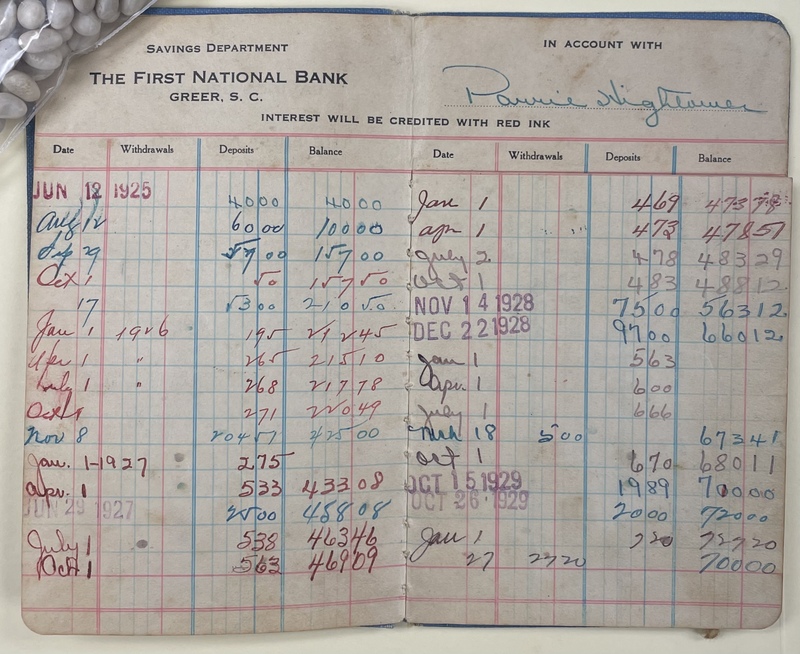 SAVINGS DEPARTMENT
THE FIRST NATIONAL BANK
GREER, S. C.
IN ACCOUNT WITH
Parrie Hightower
INTEREST WILL BE CREDITED WITH RED INK
Date Withdrawals Deposits Balance
JUN 12 1925 40 00 40 00
Aug 12 60 00 100 00
Sep 29 57 00 157 00
Oct 1 50 157 50
17 53 00 210 50
Jan 1 1926 195 212 45
Apr 1 " 265 215 10
July 1 " 268 217 78
Oct 1 271 220 49
Nov 8 204 51 425 00
Jan. 1-1927 275
Apr. 1 533 433 08
JUN 29 1927 25 00 458 08
July 1 538 463 46
Oct 1 563 469 09
Date Withdrawals Deposits Balance
Jan 1 469 473 78
Apr 1 473 478 51
July 2 478 483 29
Oct 1 483 488 12
NOV 14 1928 75 00 563 12
DEC 22 1928 97 00 660 12
Jan 1 563
Apr. 1 600
July 1 666
18 5 00 673 41
Oct 1 670 680 11
OCT 15 1929 19 89 700 00
OCT 26 1929 20 00 720 00
Jan 1 720 727 20
27 27 20 700 00